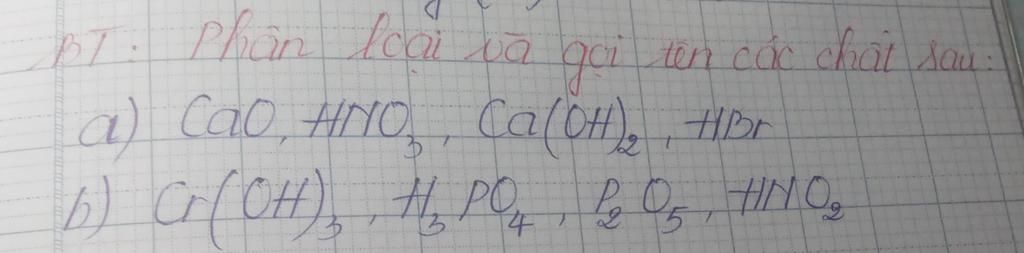 BT: Phân loại và gọi tên các chất sau:
a) CaO, HNO₃, Ca(OH)₂, HBr
b) Cr(OH)₃, H₃PO₄, P₂O₅, HNO₂